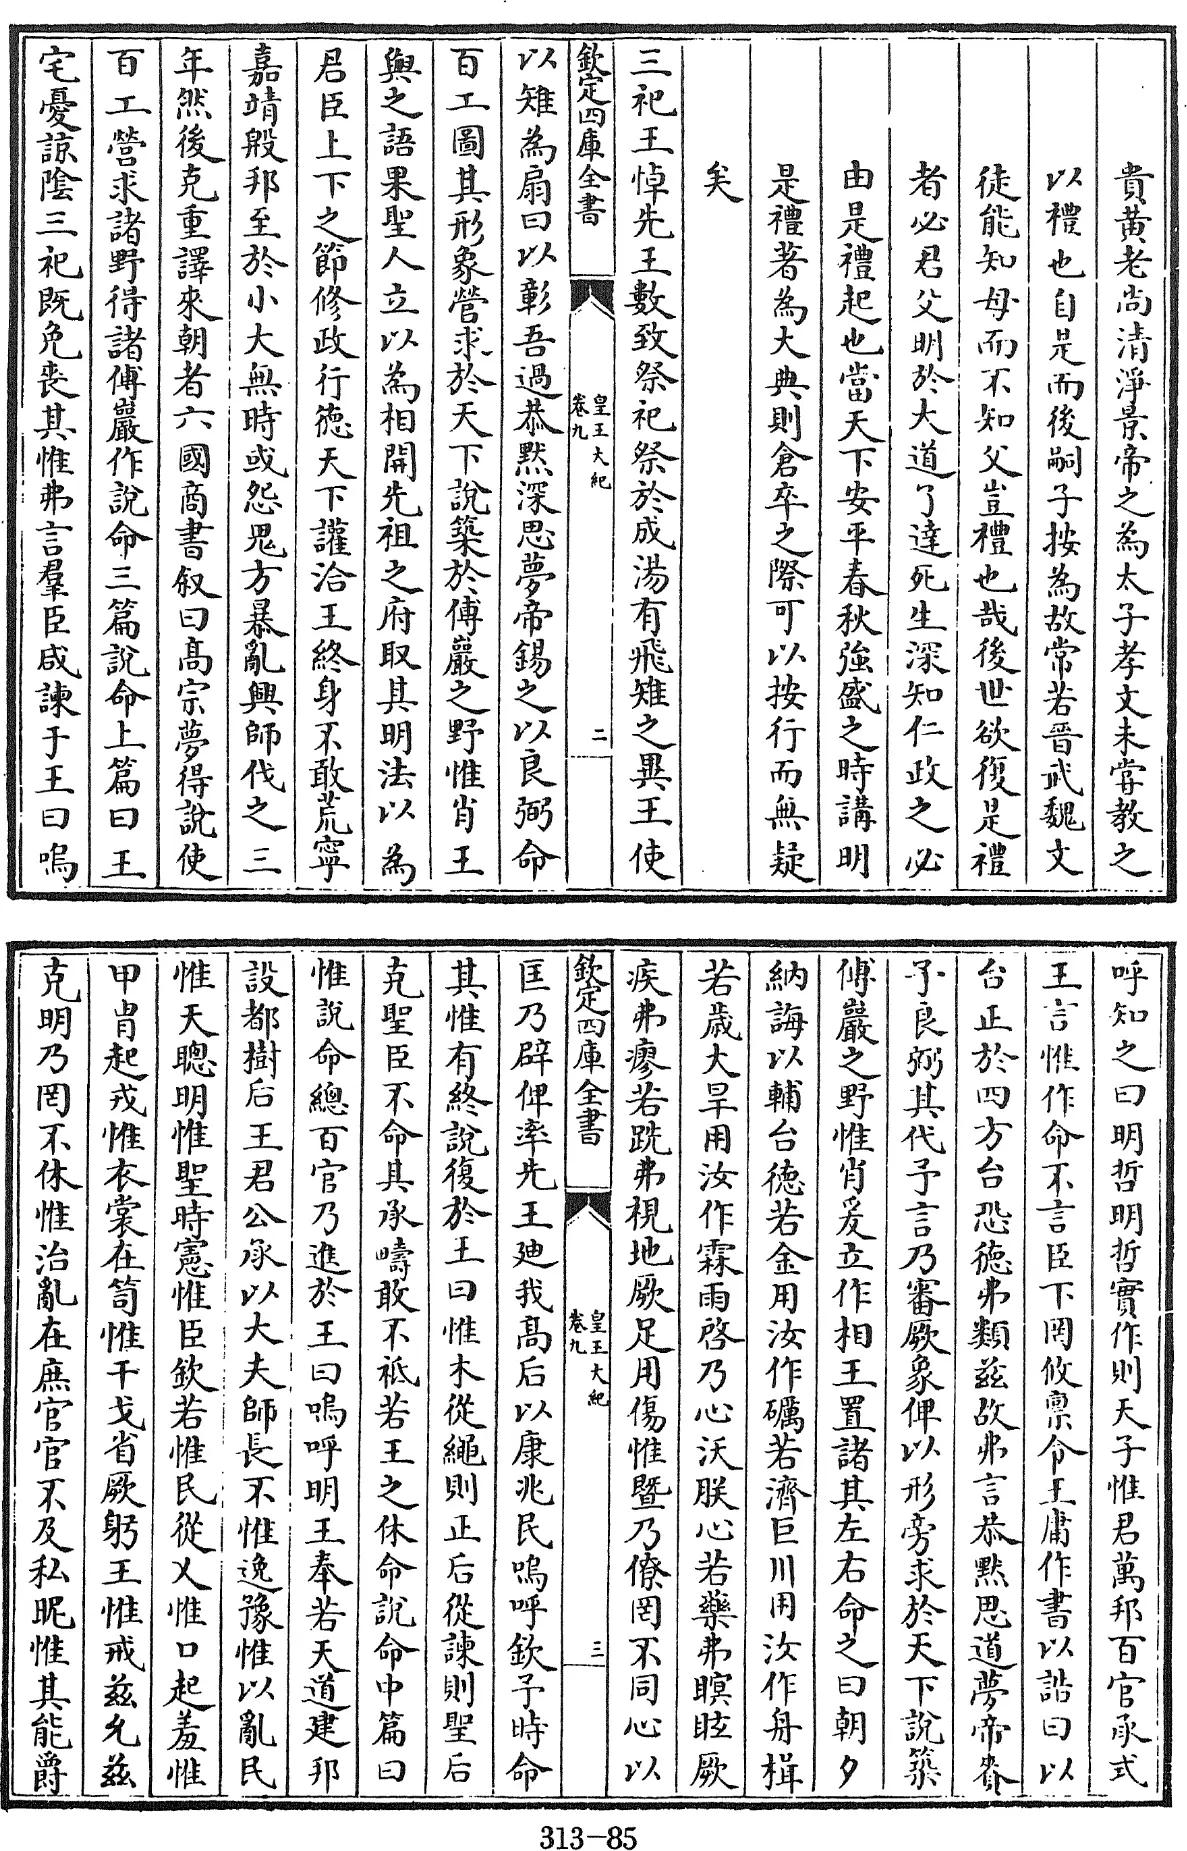 貴黄老尚清淨景帝之為太子孝文未嘗教之
以禮也自是而後嗣子按為故常若晉武魏文
徒能知母而不知父豈禮也哉後世欲復是禮
者必君父明於大道了達死生深知仁政之必
由是禮起也當天下安平春秋強盛之時講明
是禮著為大典則倉卒之際可以按行而無疑
矣
三祀王悼先王數致祭祀祭於成湯有飛雉之異王使
欽定四庫全書
皇王大紀
卷九
二
以雉為扇曰以彰吾過恭黙深思夢帝錫之以良弼命
百工圖其形象營求於天下說築於傅巖之野惟肖王
與之語果聖人立以為相開先祖之府取其明法以為
君臣上下之節修政行徳天下讙洽王終身不敢荒寧
嘉靖殷邦至於小大無時或怨鬼方暴亂興師伐之三
年然後克重譯來朝者六國商書叙曰髙宗夢得說使
百工營求諸野得諸傅巖作說命三篇說命上篇曰王
宅憂諒陰三祀既免喪其惟弗言羣臣咸諫于王曰嗚
呼知之曰明哲明哲實作則天子惟君萬邦百官承式
王言惟作命不言臣下罔攸禀令王庸作書以誥曰以
台正於四方台恐徳弗類兹故弗言恭黙思道夢帝賚
予良弼其代予言乃審厥象俾以形旁求於天下說築
傅巖之野惟肖爰立作相王置諸其左右命之曰朝夕
納誨以輔台徳若金用汝作礪若濟巨川用汝作舟楫
若歳大旱用汝作霖雨啓乃心沃朕心若藥弗瞑眩厥
疾弗瘳若跣弗視地厥足用傷惟暨乃僚罔不同心以
欽定四庫全書
皇王大紀
卷九
三
匡乃辟俾率先王廸我髙后以康兆民嗚呼欽予時命
其惟有終說復於王曰惟木從繩則正后從諫則聖后
克聖臣不命其承疇敢不祗若王之休命說命中篇曰
惟說命總百官乃進於王曰嗚呼明王奉若天道建邦
設都樹后王君公承以大夫師長不惟逸豫惟以亂民
惟天聰明惟聖時憲惟臣欽若惟民從乂惟口起羞惟
甲胄起戎惟衣裳在笥惟干戈省厥躬王惟戒兹允兹
克明乃罔不休惟治亂在庶官官不及私昵惟其能爵
313-85